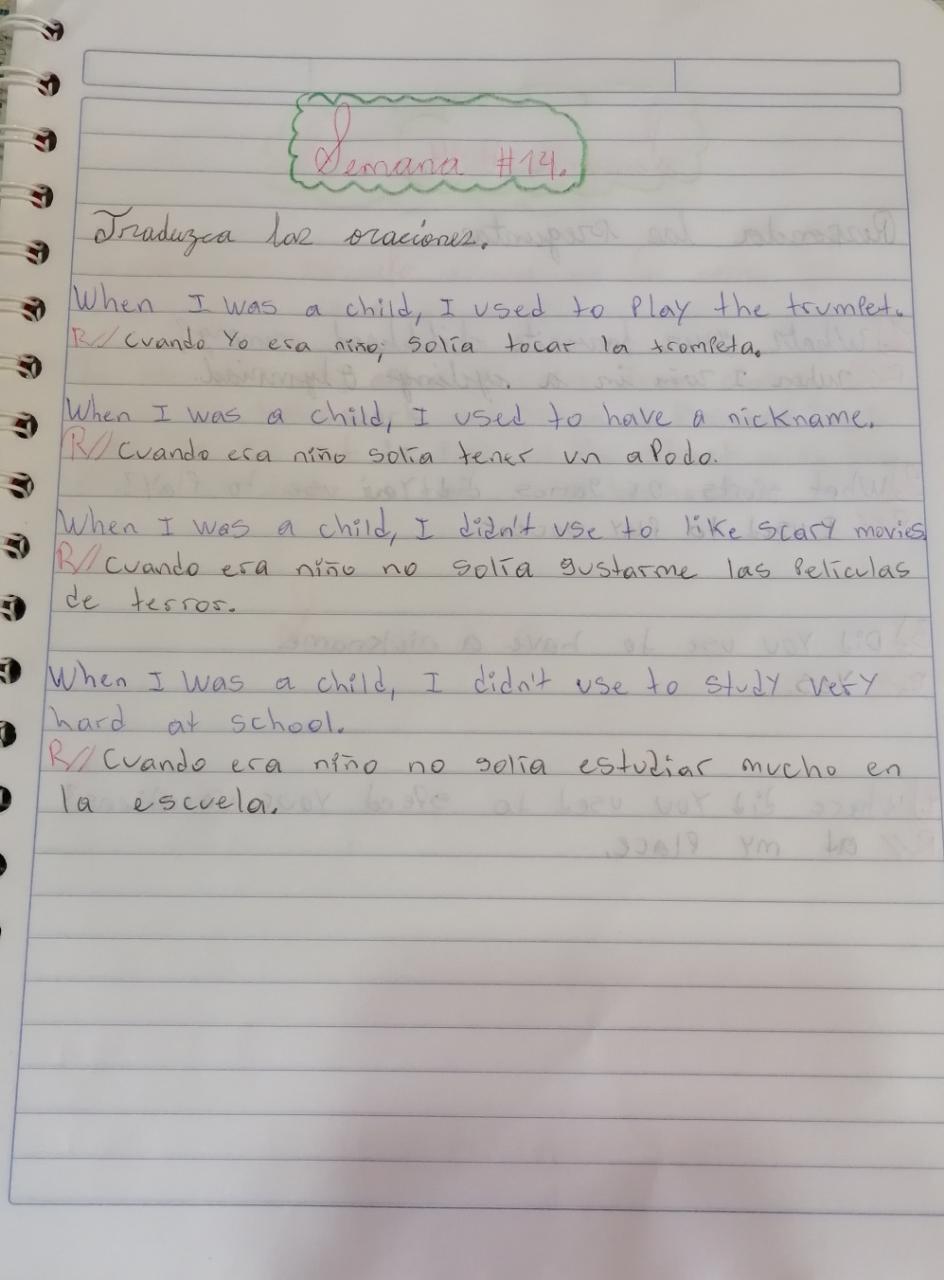 Semana #14.
Traduzca las oraciones.
When I was a child, I used to Play the trumpet.
R// Cuando Yo era niño; solía tocar la trompeta.
When I was a child, I used to have a nickname.
R// Cuando era niño solía tener un apodo.
When I was a child, I didn't use to like scary movies
R// Cuando era niño no solía gustarme las Películas
de terror.
When I was a child, I didn't use to study very
hard at school.
R// Cuando era niño no solía estudiar mucho en
la escuela.